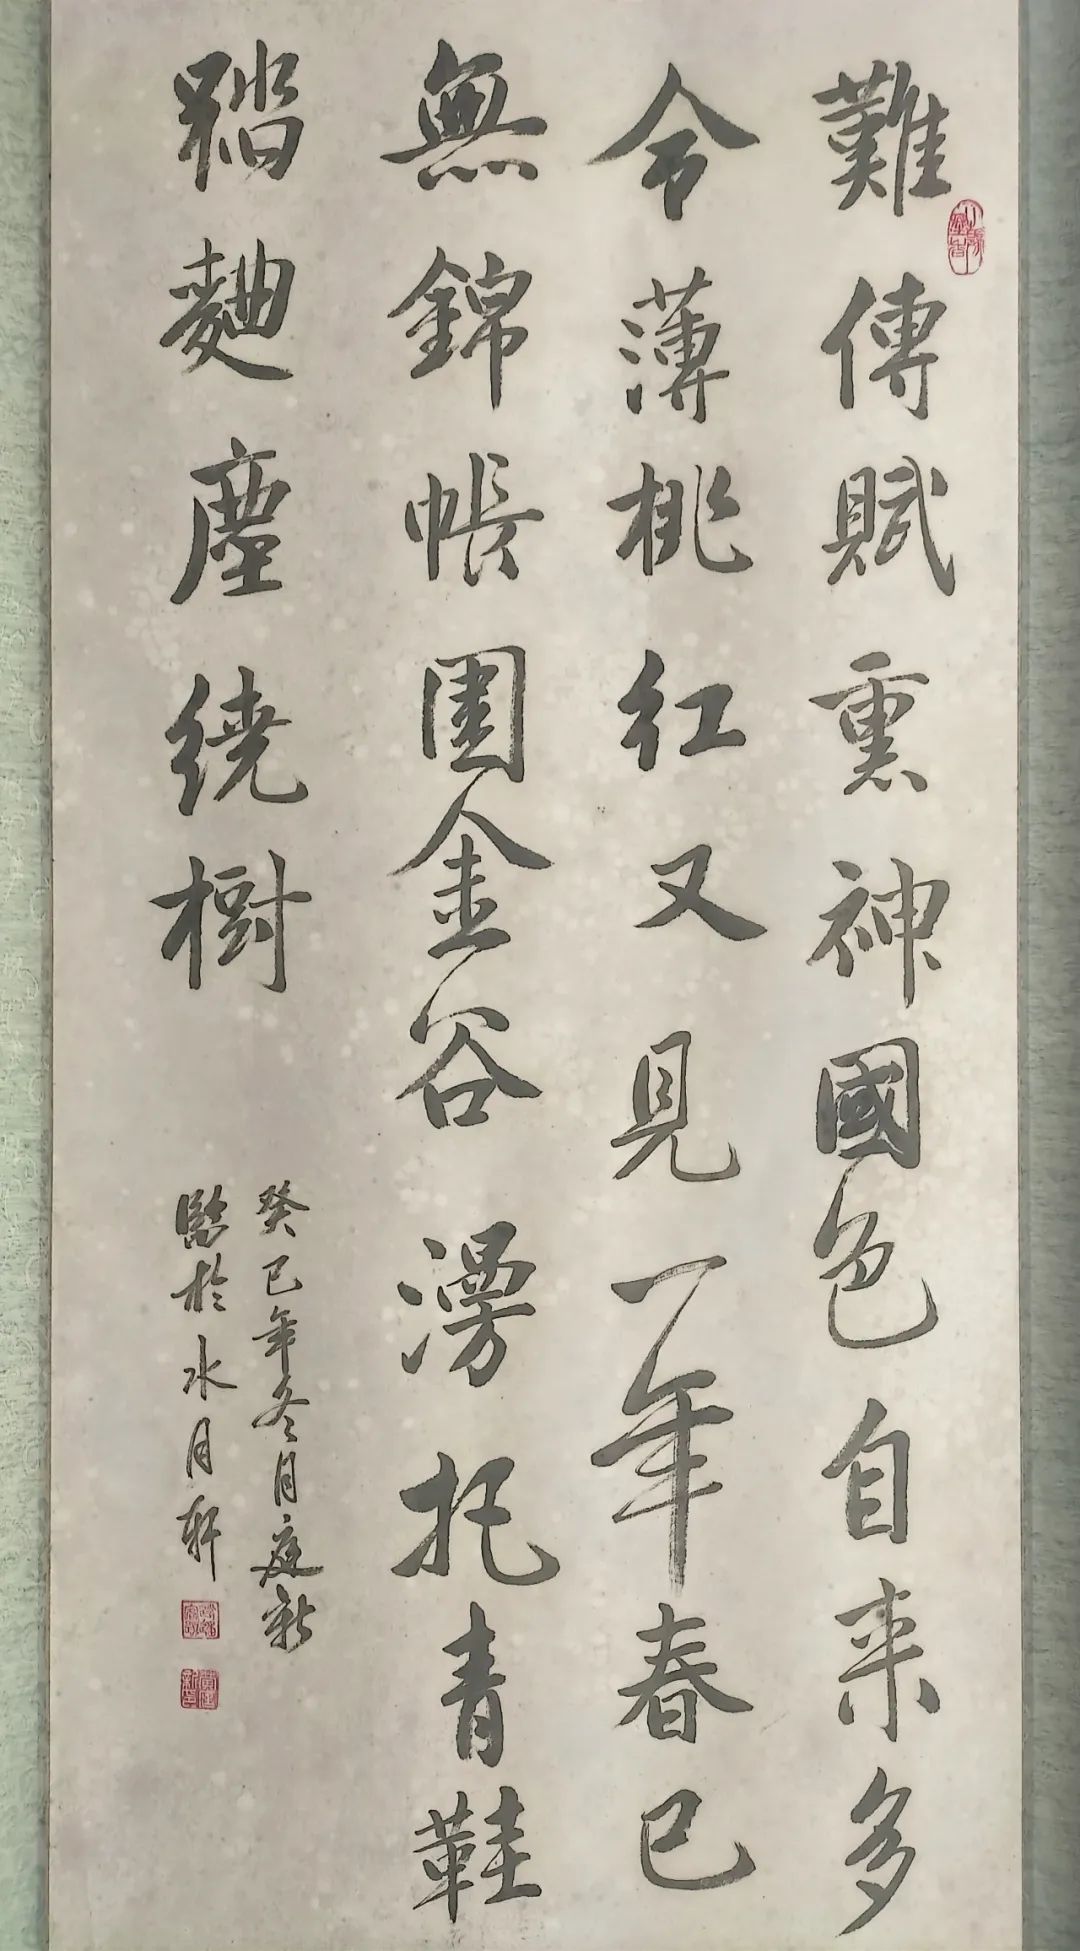 難傳賦熏神國色自来多
令薄桃红又見一年春已
無錦帳圍金谷漫托青鞋
踏麯塵繞樹
癸已年冬月庭新
書於水月軒